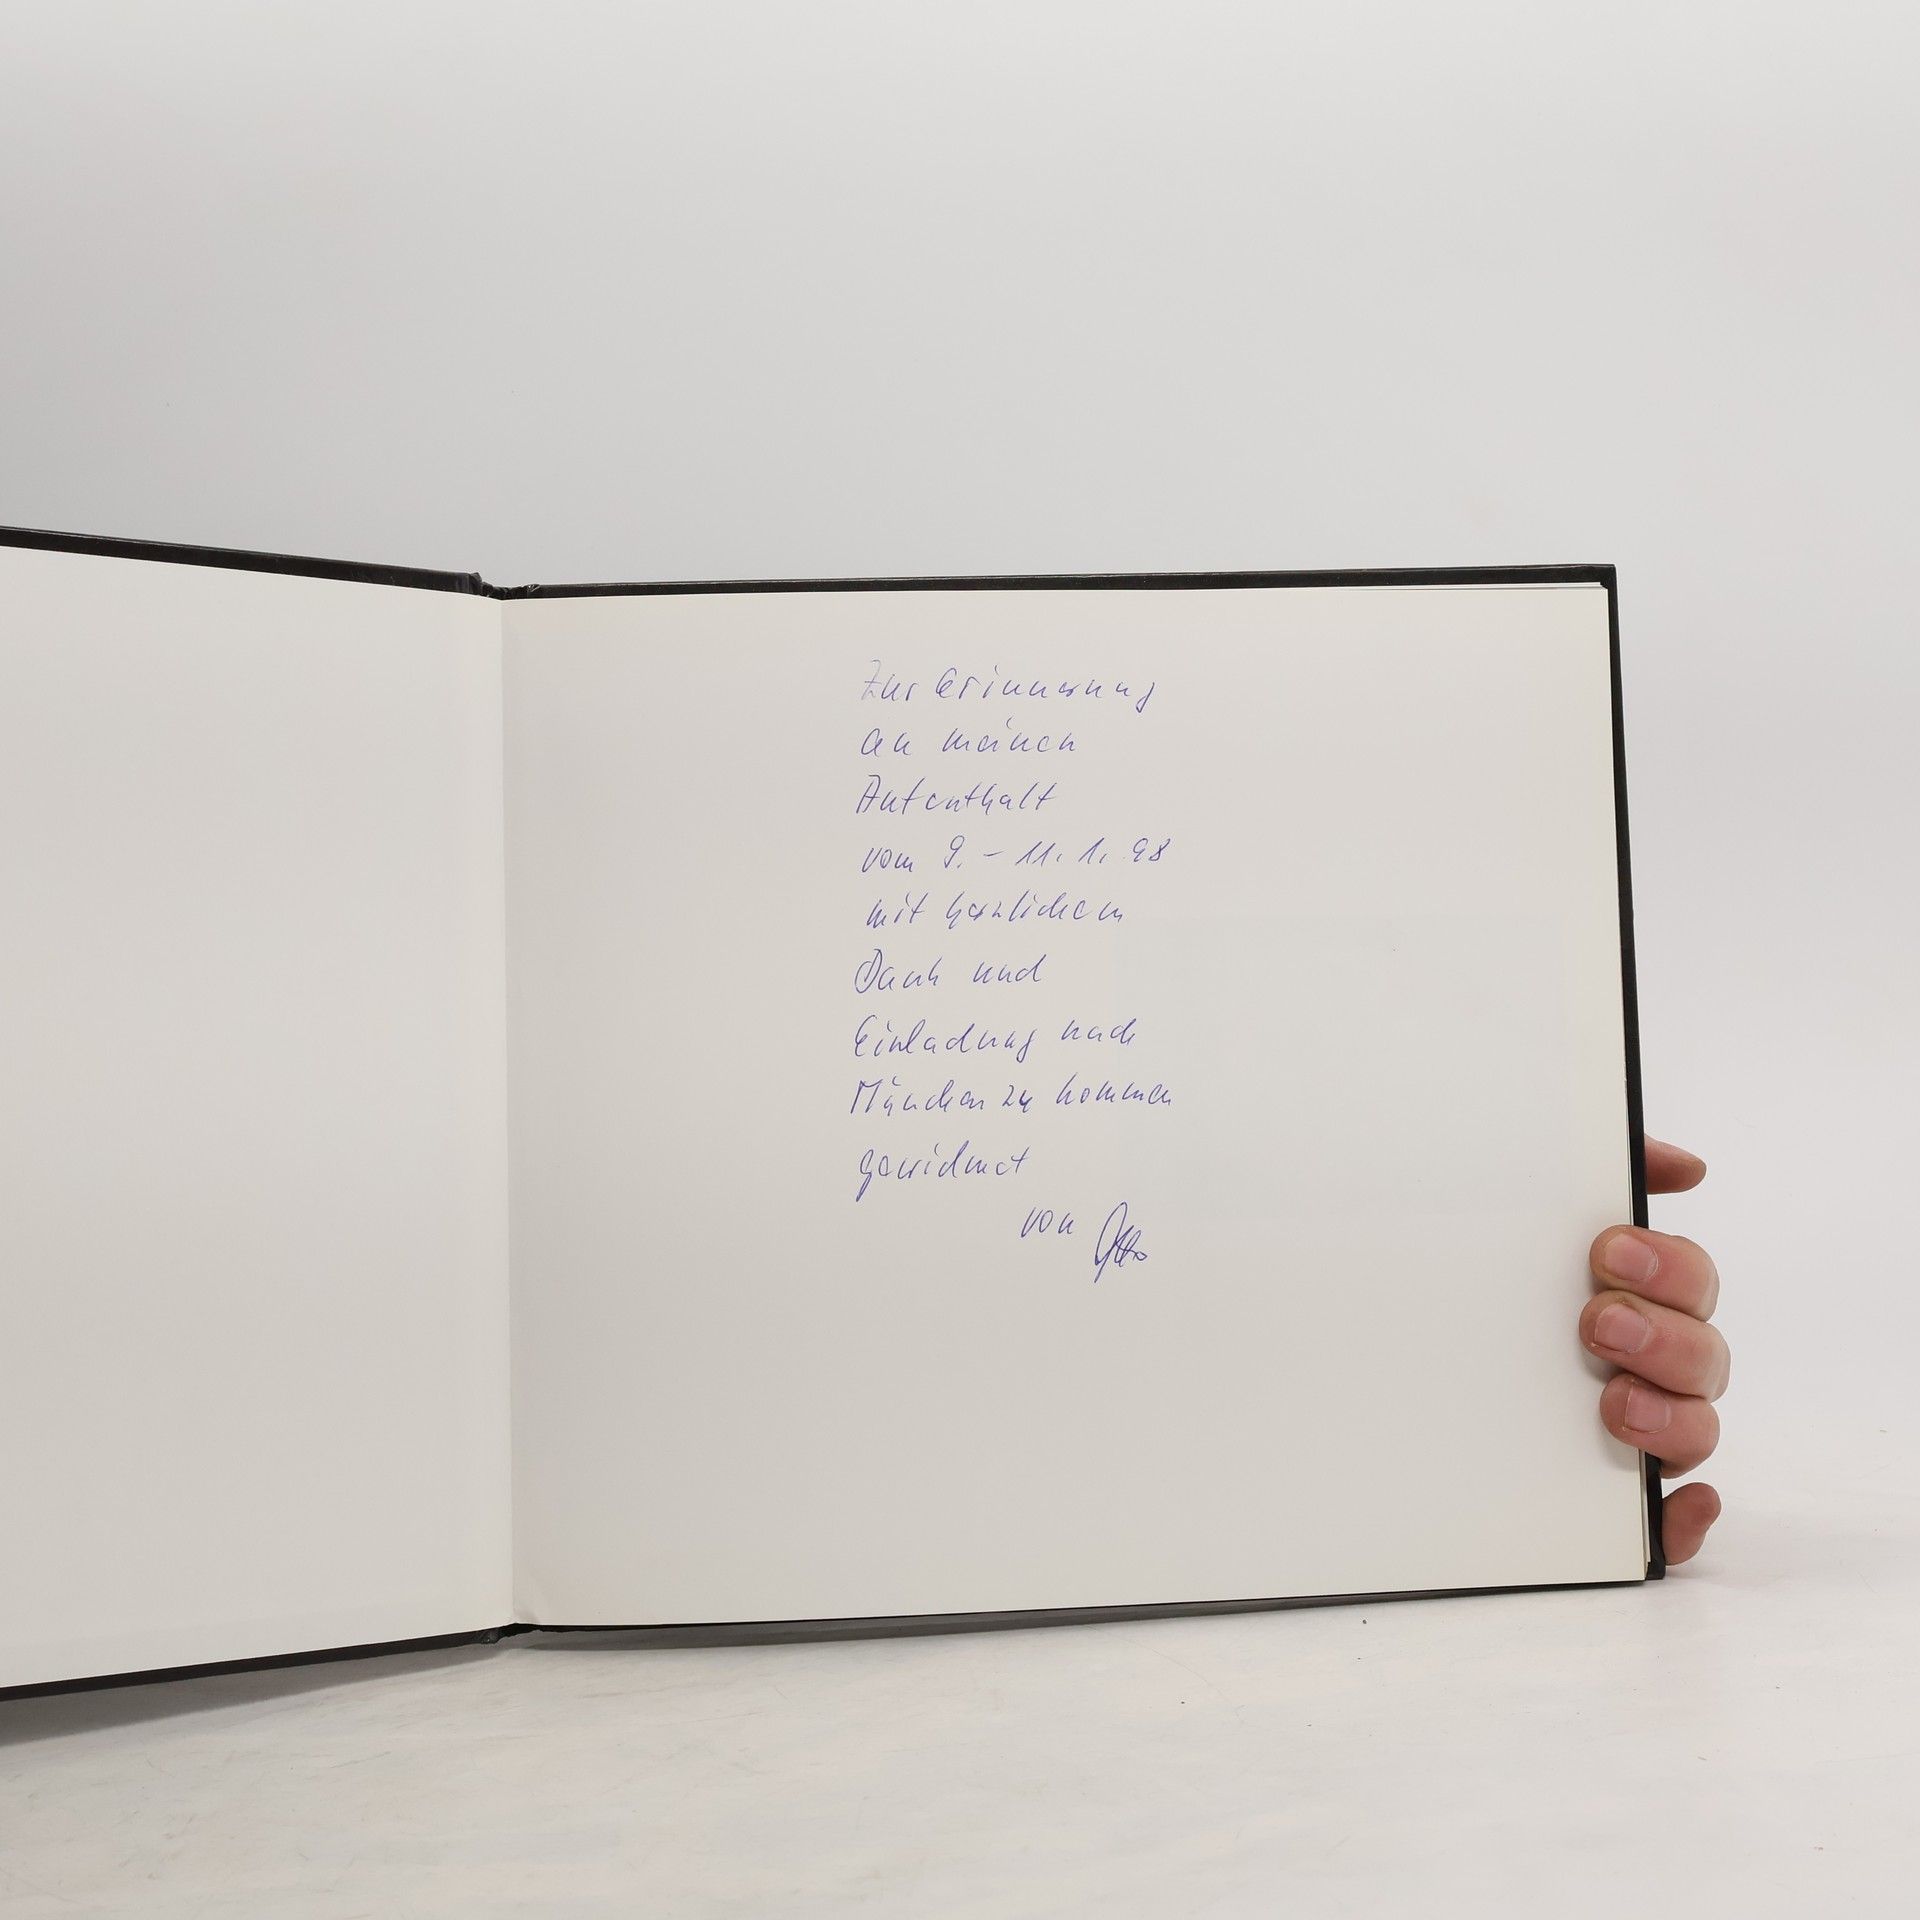 Zur Erinnerung
an meinen
Aufenthalt
vom 9. - 11. 1. 98
mit herzlichem
Dank und
Einladung nach
München zu kommen
gewidmet
von Otto